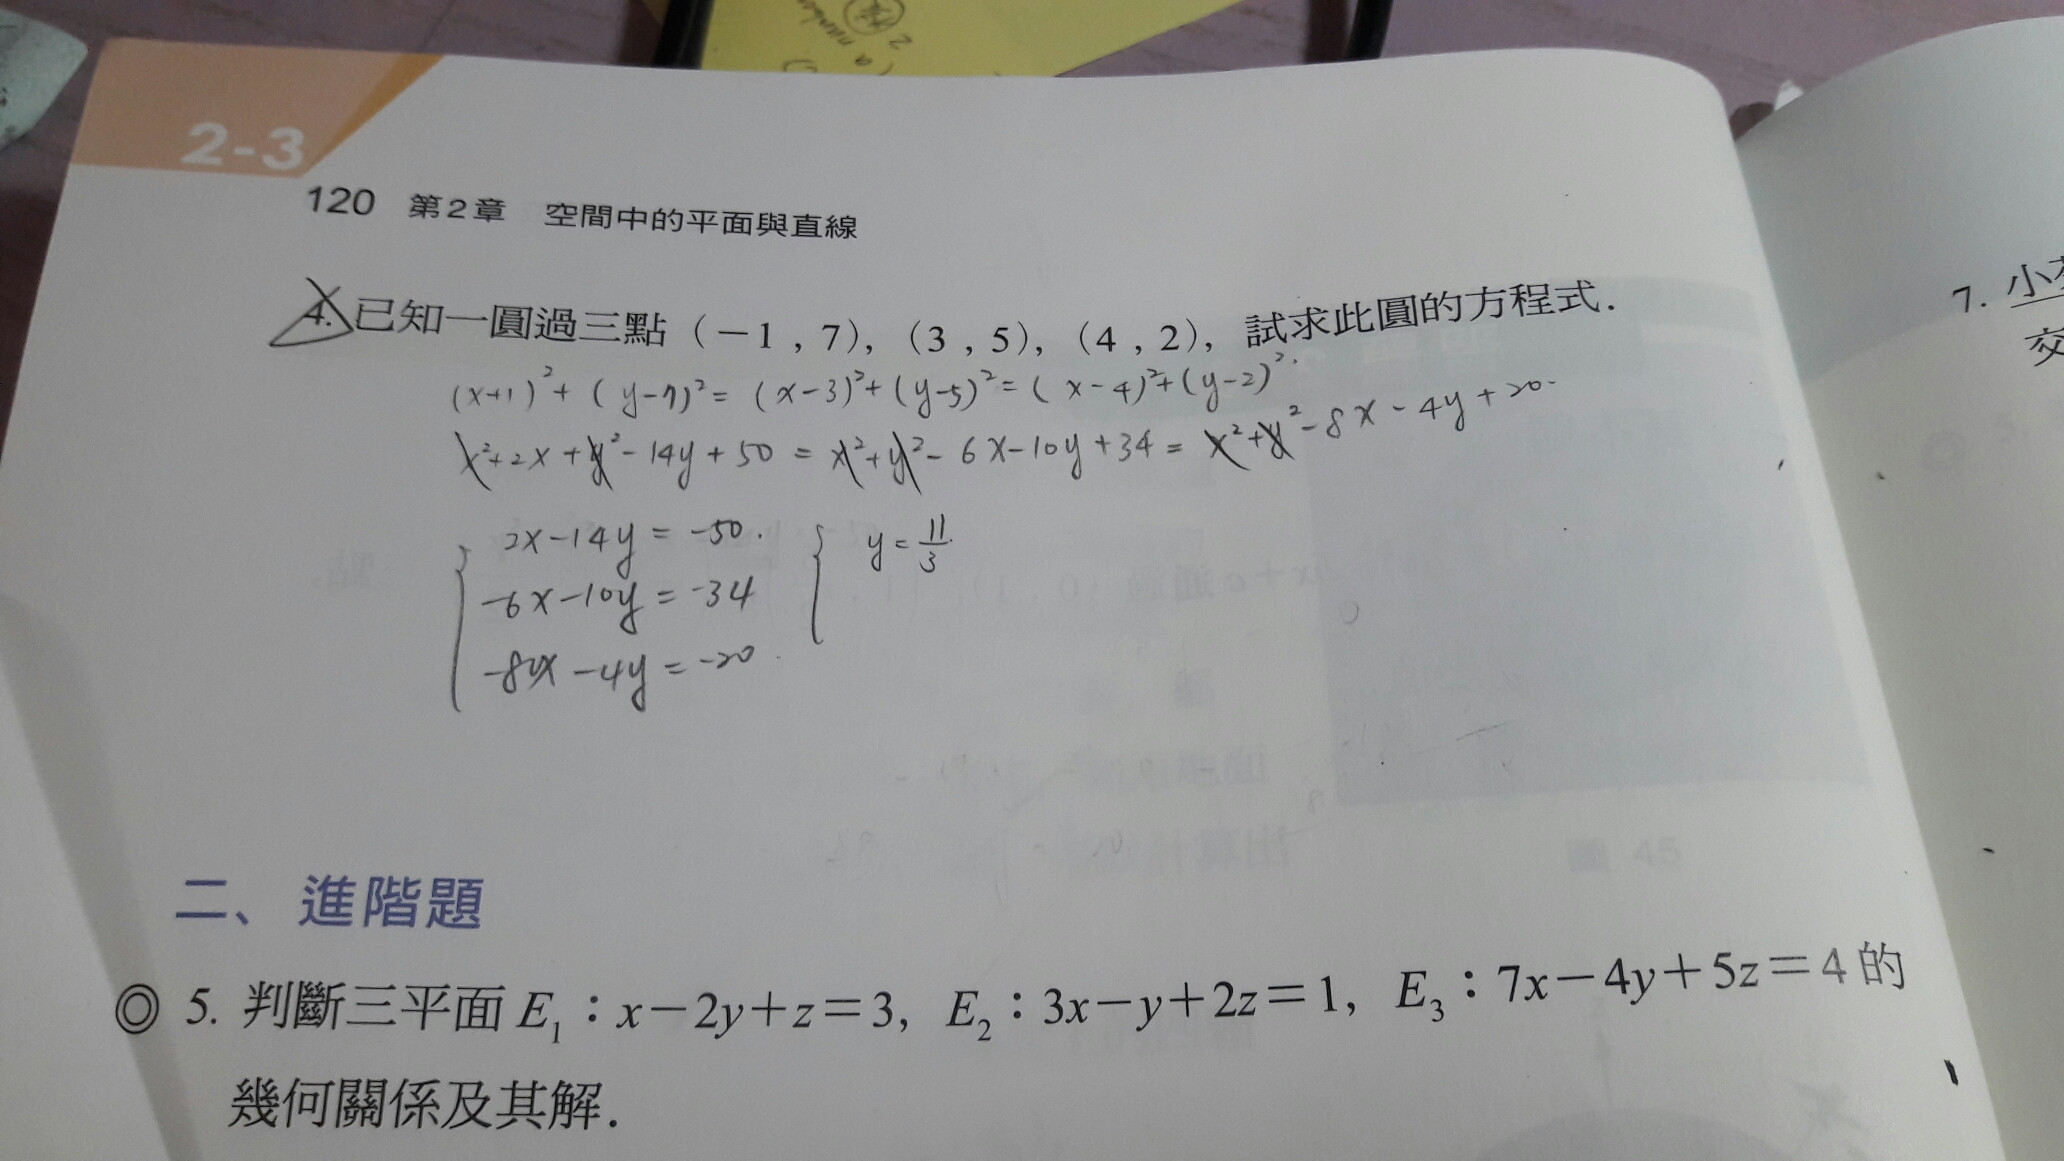 2 檢
a number
2-3
120 第2章 空間中的平面與直線
4. 已知一圓過三點 (-1, 7), (3, 5), (4, 2), 試求此圓的方程式.
(x+1)²+(y-7)²=(x-3)²+(y-5)²=(x-4)²+(y-2)².
x²+2x+y²-14y+50=x²+y²-6x-10y+34=x²+y²-8x-4y+20.
2x-14y=-50.
y=11/3
-6x-10y=-34
-8x-4y=-20
二、進階題
◎ 5. 判斷三平面 E₁:x-2y+z=3, E₂:3x-y+2z=1, E₃:7x-4y+5z=4 的
幾何關係及其解.
7. 小
交